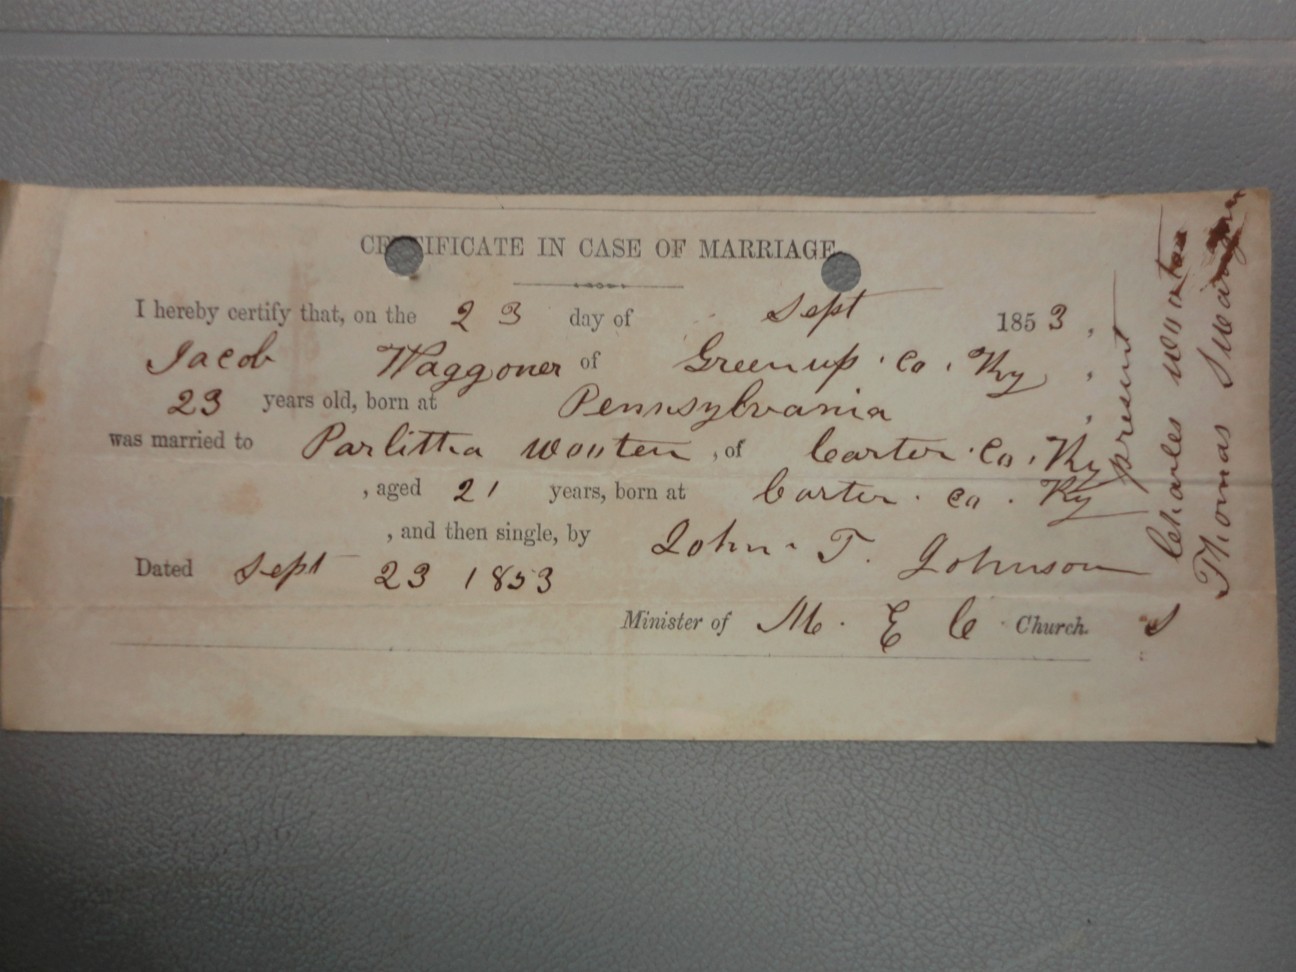 CERTIFICATE IN CASE OF MARRIAGE.
I hereby certify that, on the 23 day of Sept 1853,
Jacob Waggoner of Greenup. Co. Ky,
23 years old, born at Pennsylvania,
was married to Parlittha Wooten, of Carter. Co. Ky
, aged 21 years, born at Carter. Co. Ky
, and then single, by John. T. Johnson
Dated Sept 23 1853
Minister of M. E C Church.
present
Charles Wooton
Thomas